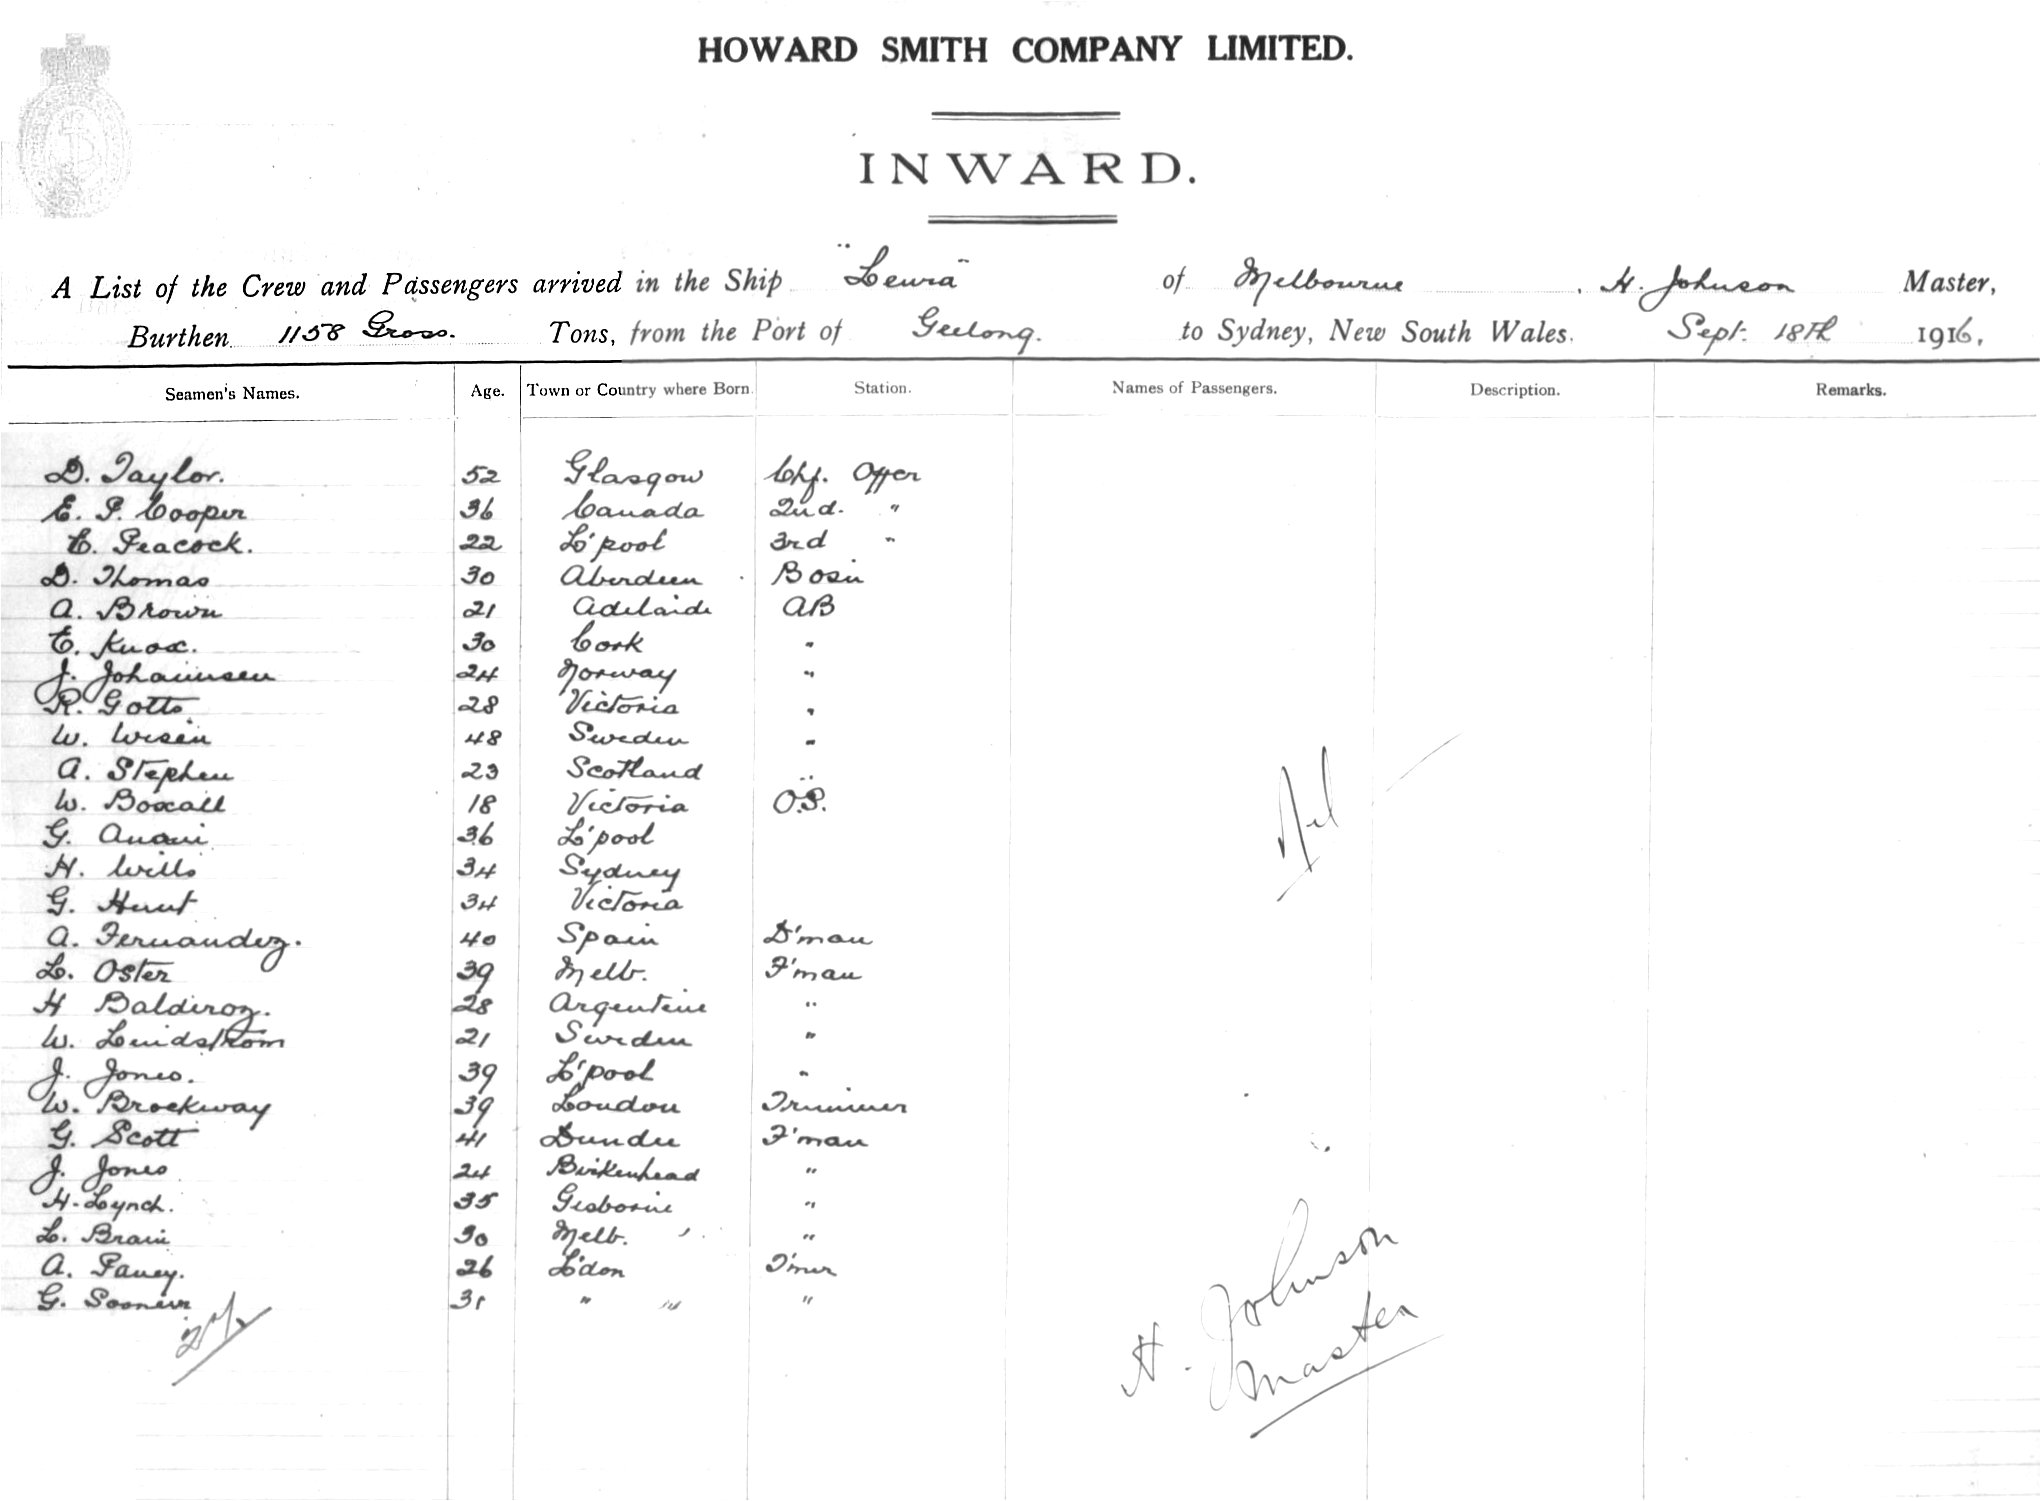 HOWARD SMITH COMPANY LIMITED.
INWARD.
A List of the Crew and Passengers arrived in the Ship "Leura" of Melbourne, H. Johnson Master,
Burthen 1158 Gross. Tons, from the Port of Geelong. to Sydney, New South Wales. Sept. 18th 1916.
Seamen's Names. Age. Town or Country where Born. Station. Names of Passengers. Description. Remarks.
D. Taylor. 52 Glasgow Chf. Offer
E. P. Cooper 36 Canada 2nd. "
E. Peacock. 22 L'pool 3rd "
D. Thomas 30 Aberdeen Bosn
A. Brown 21 Adelaide AB
E. Knox. 30 Cork "
J. Johannsen 24 Norway "
R. Gotts 28 Victoria "
W. Wisen 48 Sweden "
A. Stephen 23 Scotland "
W. Boxall 18 Victoria O.S.
G. 36 L'pool
H. Wills 34 Sydney
G. Hunt 34 Victoria
Nil
A. Fernandez. 40 Spain D'man
L. Oster 39 Melb. F'man
H Balderoz. 28 Argentine "
W. Lindstrom 21 Sweden "
J. Jones. 39 L'pool "
W. Brockway 39 London Trimmer
G. Scott 41 Dundee F'man
J. Jones 24 Birkenhead "
H. Lynch. 35 Gisborne "
L. Brain 30 Melb. "
A. Pavey. 26 L'don T'mer
G. 31 " "
H. Johnson
Master